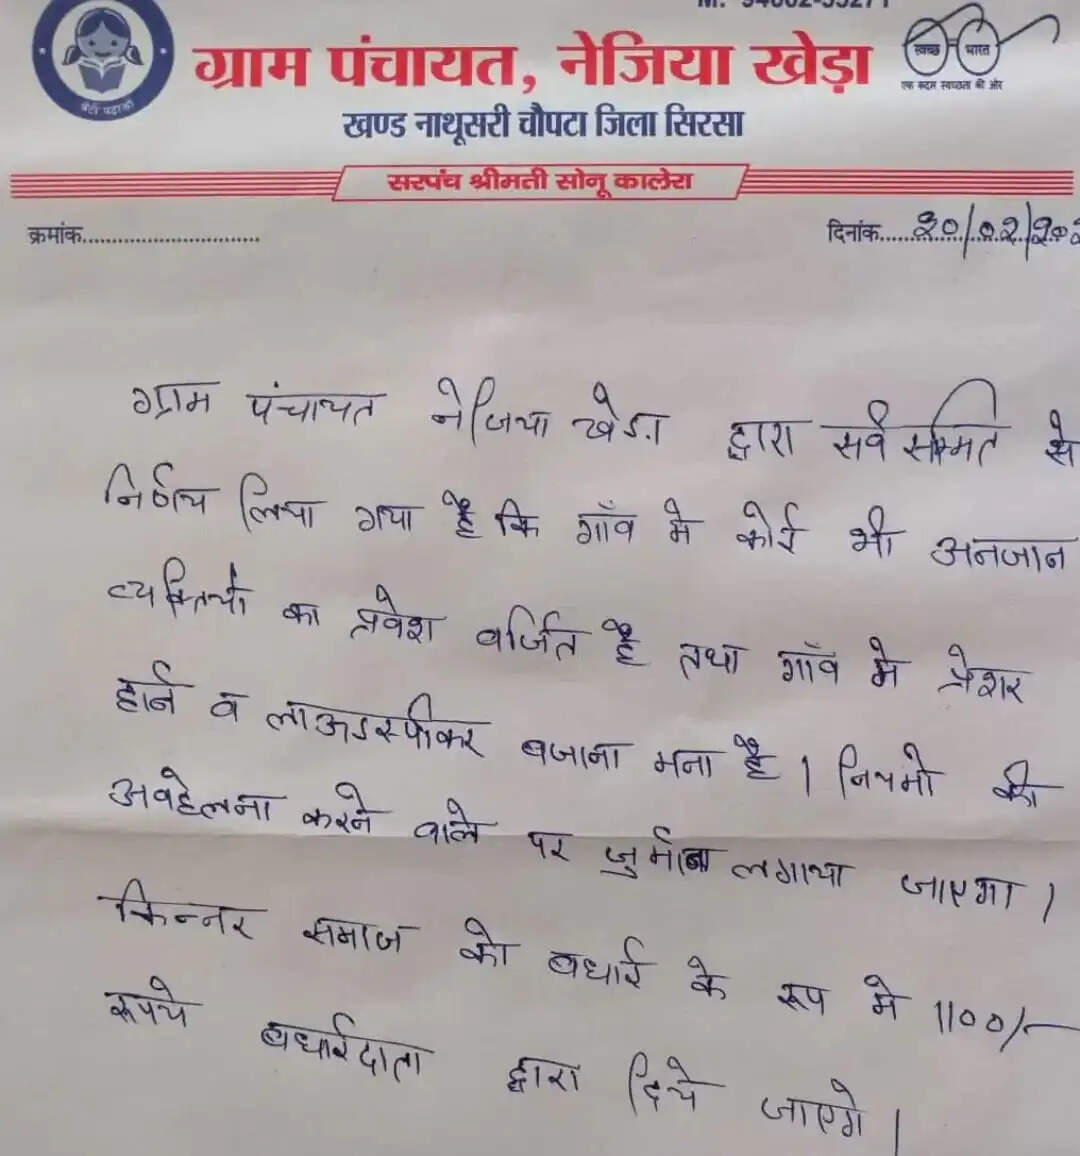 ग्राम पंचायत, नेजिया खेड़ा
स्वच्छ भारत
एक कदम स्वच्छता की ओर
बेटी पढ़ाओ
खण्ड नाथूसरी चौपटा जिला सिरसा
सरपंच श्रीमती सोनू कालेरा
क्रमांक.............................
दिनांक....20/02/202
ग्राम पंचायत नेजिया खेडा द्वारा सर्व सम्मति से
निर्णय लिया गया है कि गाँव मे कोई भी अनजान
व्यक्तियो का प्रवेश वर्जित है तथा गाँव मे प्रेशर
हार्न व लाऊडस्पीकर बजाना मना है । नियमो की
अवहेलना करने वाले पर जुर्माना लगाया जाएगा ।
किन्नर समाज को बधाई के रूप मे 1100/-
रूपये बधाईदाता द्वारा दिये जाएगे ।